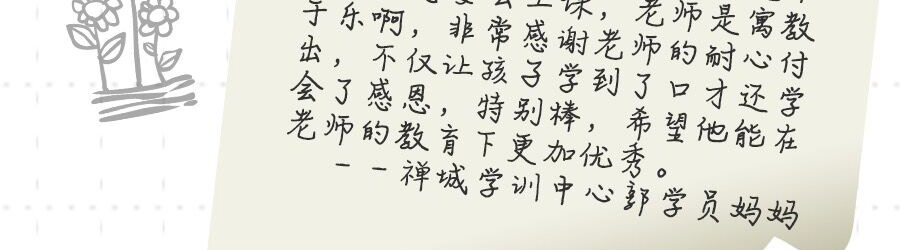 课，老师是寓教
于乐啊，非常感谢老师的耐心付
出，不仅让孩子学到了口才还学
会了感恩，特别棒，希望他能在
老师的教育下更加优秀。
——禅城学训中心郭学员妈妈